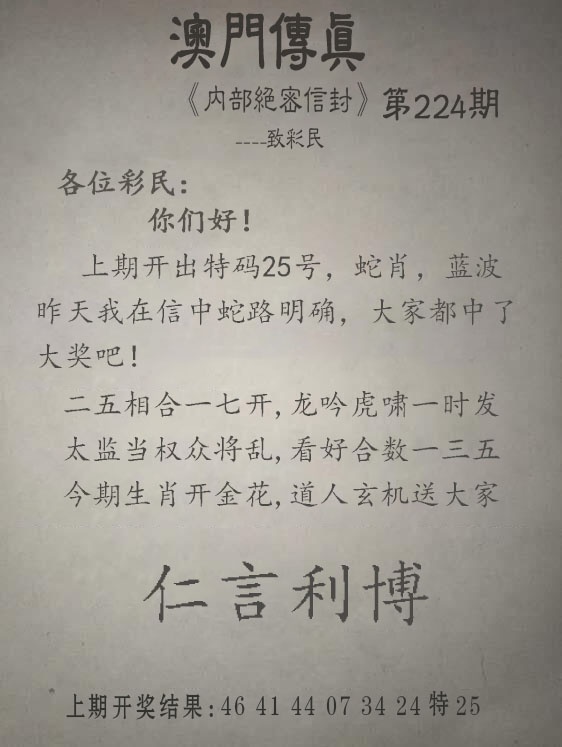 澳門傳眞
《内部絕密信封》第224期
----致彩民
各位彩民：
你们好！
上期开出特码25号，蛇肖，蓝波
昨天我在信中蛇路明确，大家都中了
大奖吧！
二五相合一七开,龙吟虎啸一时发
太监当权众将乱,看好合数一三五
今期生肖开金花,道人玄机送大家
仁言利博
上期开奖结果:46 41 44 07 34 24 特 25